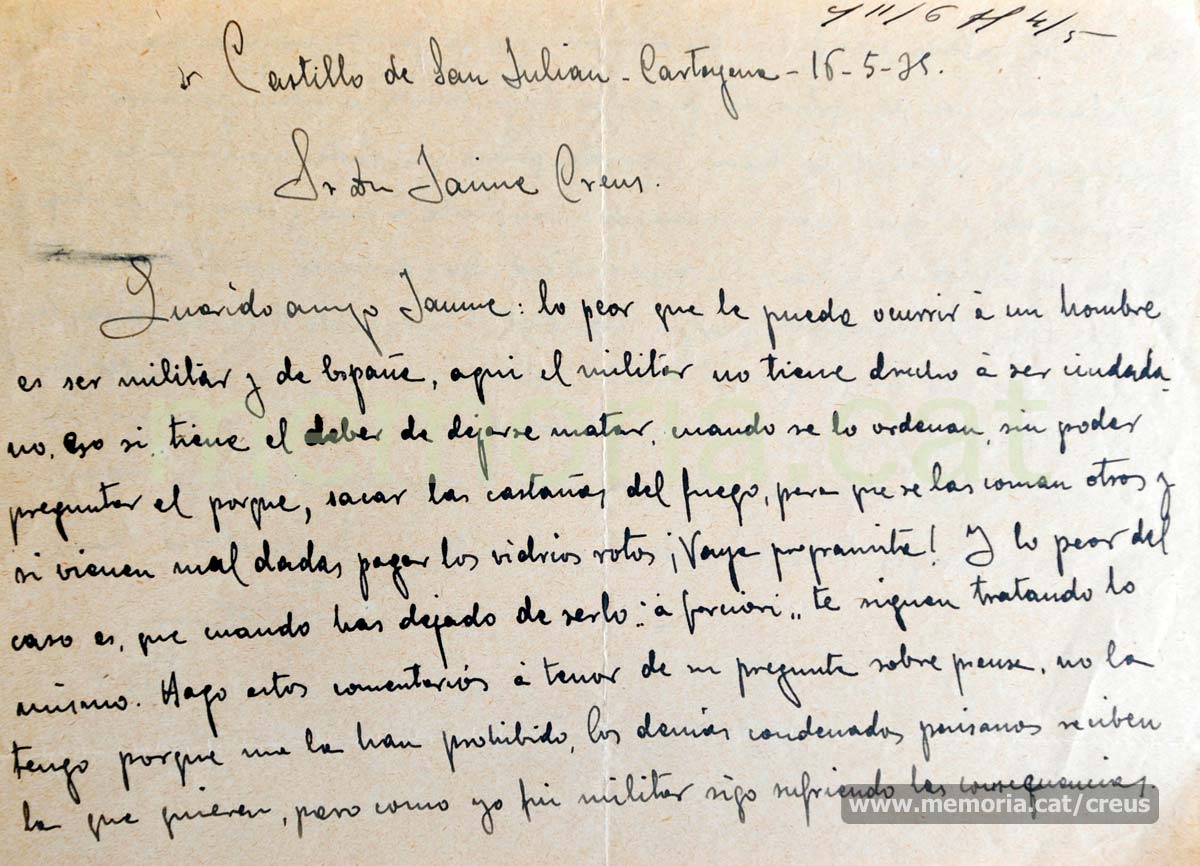 Castillo de San Julian - Cartagena - 16-5-75.
Sr Dn Jaime Creus.
Querido amigo Jaume: lo peor que le puede ocurrir à un hombre
es ser militar y de España, aqui el militar no tiene derecho à ser ciudada-
no, eso si, tiene el deber de dejarse matar, cuando se lo ordenan, sin poder
preguntar el porque, sacar las castañas del fuego, para que se las coman otros y
si vienen mal dadas pagar los vidrios rotos ¡Vaya programita! Y lo peor del
caso es, que cuando has dejado de serlo "à forciori" te siguen tratando lo
mismo. Hago estos comentarios à tenor de su pregunta sobre prensa, no la
tengo porque me la han prohibido, los demás condenados paisanos reciben
la que quieren, pero como yo fui militar sigo sufriendo las consequencias.
memoria.cat
www.memoria.cat/creus